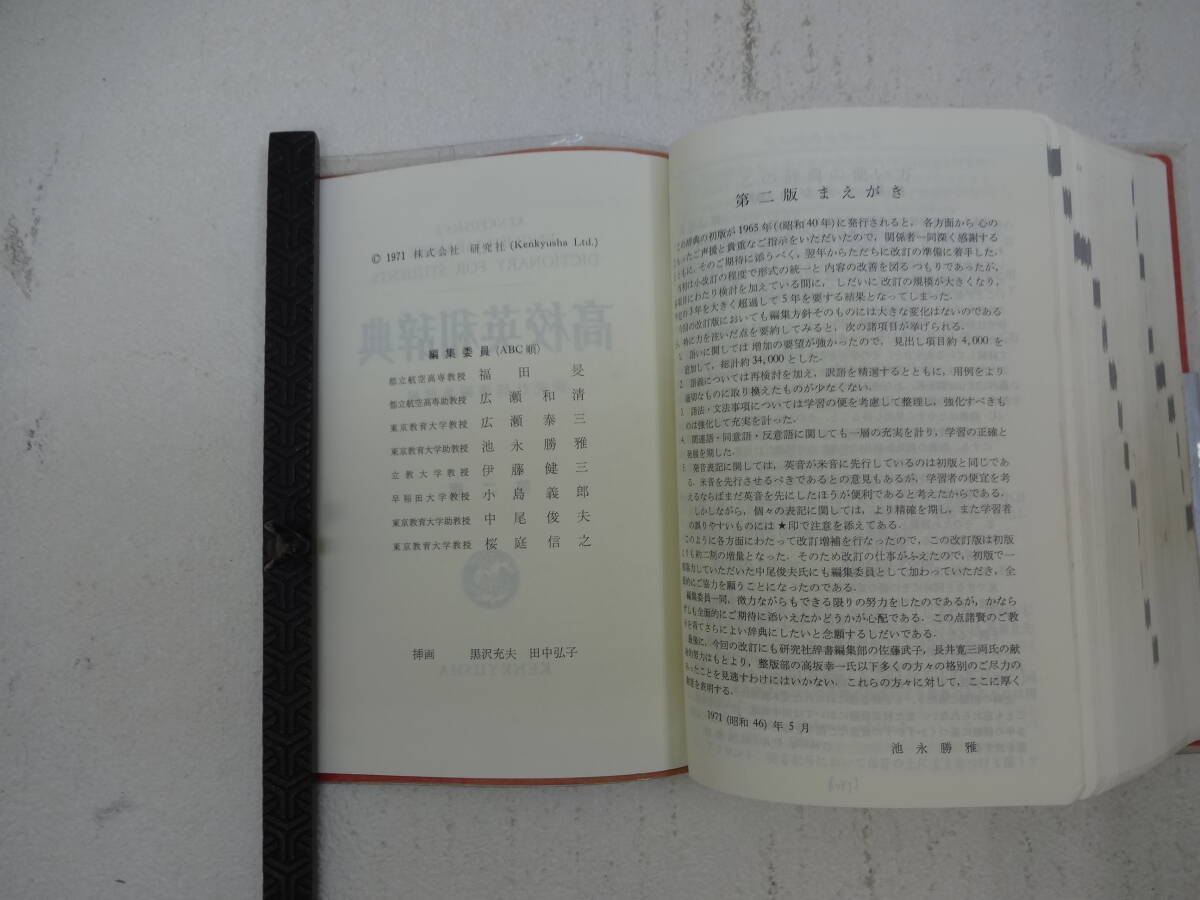 © 1971 株式会社 研究社 (Kenkyusha Ltd.)
DICTIONARY FOR STUDENTS
高校英和辞典
編集委員 (ABC順)
都立航空高専教授 福田
都立航空高専助教授 広瀬和清
東京教育大学教授 広瀬泰三
東京教育大学助教授 池永勝雅
立教大学教授 伊藤健三
早稲田大学教授 小島義郎
東京教育大学助教授 中尾俊夫
東京教育大学教授 桜庭信之
挿画 黒沢充夫 田中弘子
KENKYUSHA
第二版 まえがき
この辞典の初版が1965年((昭和40年)に発行されると，各方面から心の
こもったご声援と貴重なご指示をいただいたので，関係者一同深く感謝する
ともに，そのご期待に添うべく，翌年からただちに改訂の準備に着手した．
当初は小改訂の程度で形式の統一と内容の改善を図るつもりであったが，
にわたり検討を加えている間に，しだいに改訂の規模が大きくなり，
の3年を大きく超過して5年を要する結果となってしまった．
今回の改訂版においても編集方針そのものには大きな変化はないのである
，特に力を注いだ点を要約してみると，次の諸項目が挙げられる．
語いに関しては増加の要望が強かったので，見出し項目約4,000を
追加して，総計約34,000とした．
2. 語義については再検討を加え，訳語を精選するとともに，用例をより
適切なものに取り換えたものが少なくない．
3. 語法・文法事項については学習の便を考慮して整理し，強化すべきも
のは強化して充実を計った．
4. 関連語・同意語・反意語に関しても一層の充実を計り，学習の正確と
発展を期した．
5. 発音表記に関しては，英音が米音に先行しているのは初版と同じであ
る．米音を先行させるべきであるとの意見もあるが，学習者の便宜を考
えるならばまだ英音を先にしたほうが便利であると考えたからである．
しかしながら，個々の表記に関しては，より精確を期し，また学習者
の誤りやすいものには★印で注意を添えてある．
このように各方面にわたって改訂増補を行なったので，この改訂版は初版
よりも約二割の増量となった．そのため改訂の仕事がふえたので，初版で一
協力していただいた中尾俊夫氏にも編集委員として加わっていただき，全
面的にご協力を願うことになったのである．
編集委員一同，微力ながらもできる限りの努力をしたのであるが，かなら
ずしも全面的にご期待に添いえたかどうかが心配である．この点諸賢のご教
を育てさらによい辞典にしたいと念願するしだいである．
最後に，今回の改訂にも研究社辞書編集部の佐藤武子，長井寛三両氏の献
身的努力はもとより，整版部の高坂幸一氏以下多くの方々の格別のご尽力の
あったことを見逃すわけにはいかない．これらの方々に対して，ここに厚く
謝意を表明する．
1971 (昭和46) 年5月
池永勝雅